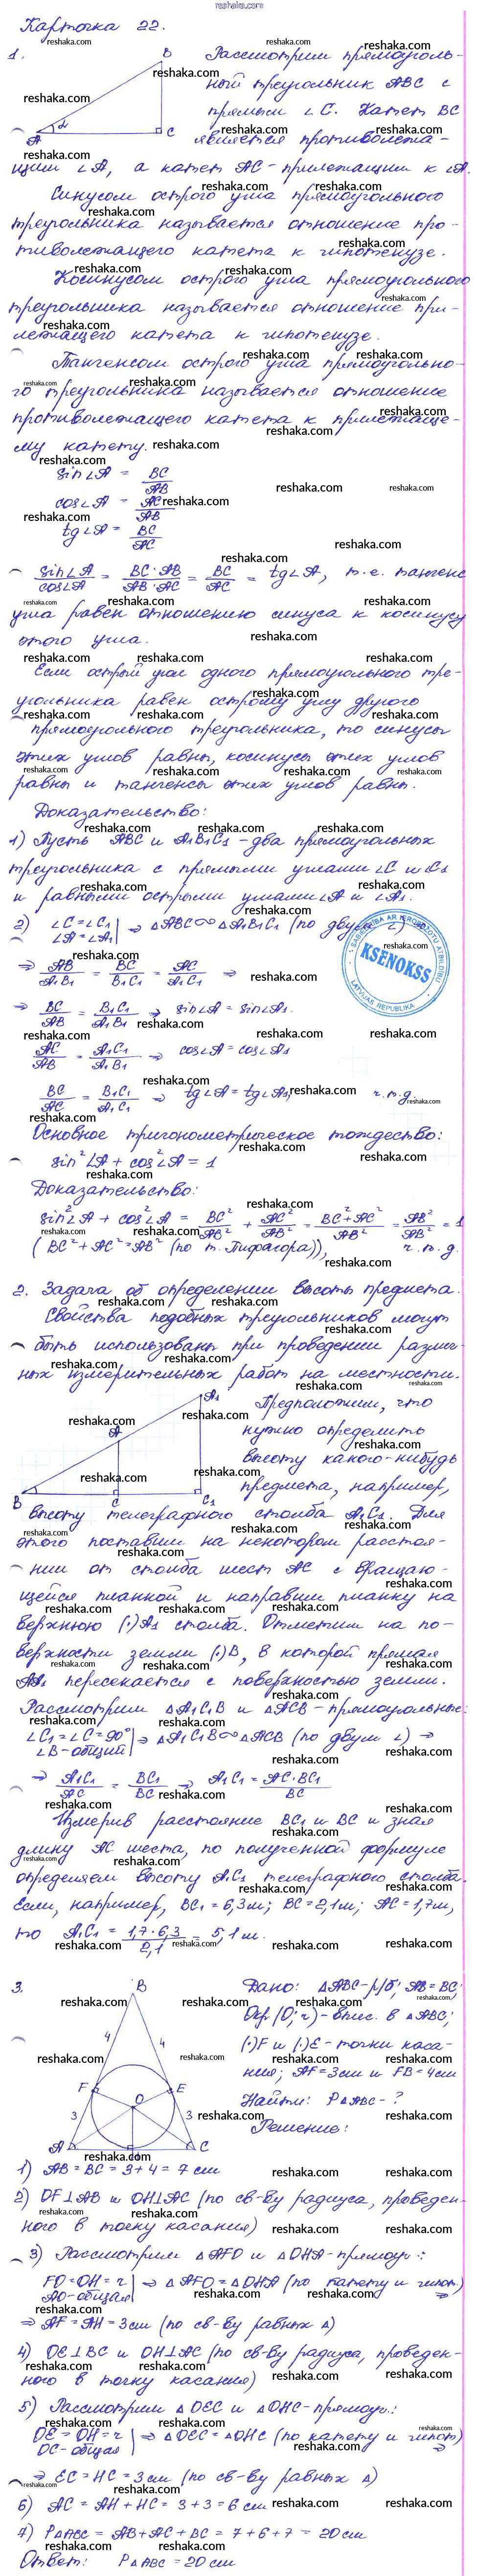 reshaka.com
Карточка 22.
1.
B
A
α
C
Рассмотрим прямоуголь-
ный треугольник ABC с
прямым ∠C. Катет BC
является противолежа-
щим ∠A, а катет AC - прилежащим к ∠A.
Синусом острого угла прямоугольного
треугольника называется отношение про-
тиволежащего катета к гипотенузе.
Косинусом острого угла прямоугольного
треугольника называется отношение при-
лежащего катета к гипотенузе.
Тангенсом острого угла прямоугольно-
го треугольника называется отношение
противолежащего катета к прилежаще-
му катету.
sin∠A = BC/AB
cos∠A = AC/AB
tg∠A = BC/AC
sin∠A/cos∠A = BC·AB/AB·AC = BC/AC = tg∠A, т.е. тангенс
угла равен отношению синуса к косинусу
этого угла.
Если острый угол одного прямоугольного тре-
угольника равен острому углу другого
прямоугольного треугольника, то синусы
этих углов равны, косинусы этих углов
равны и тангенсы этих углов равны.
Доказательство:
1) Пусть ABC и A1B1C1 - два прямоугольных
треугольника с прямыми углами ∠C и ∠C1
и равными острыми углами ∠A и ∠A1.
2) ∠C = ∠C1
∠A = ∠A1 | ⇒ ΔABC ∞ ΔA1B1C1 (по двум ∠) ⇒
⇒ AB/A1B1 = BC/B1C1 = AC/A1C1 ⇒
⇒ BC/AB = B1C1/A1B1 ⇒ sin∠A = sin∠A1.
AC/AB = A1C1/A1B1 ⇒ cos∠A = cos∠A1
BC/AC = B1C1/A1C1 ⇒ tg∠A = tg∠A1, ч.т.д.
SABIEDRĪBA AR IEROBEŽOTU ATBILDĪBU
KSENOKSS
LATVIJAS REPUBLIKA
Основное тригонометрическое тождество:
sin²∠A + cos²∠A = 1
Доказательство:
sin²∠A + cos²∠A = BC²/AB² + AC²/AB² = BC²+AC²/AB² = AB²/AB² = 1
(BC² + AC² = AB² (по т. Пифагора)), ч.т.д.
2. Задача об определении высоты предмета.
Свойства подобных треугольников могут
быть использованы при проведении различ-
ных измерительных работ на местности.
A1
A
B
C
C1
Предположим, что
нужно определить
высоту какого-нибудь
предмета, например,
высоту телеграфного столба A1C1. Для
этого поставим на некотором расстоя-
нии от столба шест AC с вращаю-
щейся планкой и направим планку на
верхнюю (·)A1 столба. Отметим на по-
верхности земли (·)B, в которой прямая
AA1 пересекается с поверхностью земли.
Рассмотрим ΔA1C1B и ΔACB - прямоугольные:
∠C1 = ∠C = 90°
∠B - общий | ⇒ ΔA1C1B ∞ ΔACB (по двум ∠) ⇒
⇒ A1C1/AC = BC1/BC ⇒ A1C1 = AC·BC1/BC
Измерив расстояние BC1 и BC и зная
длину AC шеста, по полученной формуле
определяем высоту A1C1 телеграфного столба.
Если, например, BC1 = 6,3м; BC = 2,1м; AC = 1,7м,
то A1C1 = 1,7·6,3/2,1 = 5,1 м.
3.
B
4
4
F
E
O
3
3
A
H
C
Дано: ΔABC - р/б; AB = BC;
Окр (O; r) - впис. в ΔABC;
(·)F и (·)E - точки каса-
ния; AF = 3см и FB = 4см
Найти: PΔABC - ?
Решение:
1) AB = BC = 3 + 4 = 7 см
2) OF⊥AB и OH⊥AC (по св-ву радиуса, проведен-
ного в точку касания)
3) Рассмотрим ΔAFO и ΔOHA - прямоуг.:
FO = OH = r
AO - общая | ⇒ ΔAFO = ΔOHA (по катету и гипот.) ⇒
⇒ AF = AH = 3см (по св-ву равных Δ)
4) OE⊥BC и OH⊥AC (по св-ву радиуса, проведен-
ного в точку касания)
5) Рассмотрим ΔOEC и ΔOHC - прямоуг.:
OE = OH = r
OC - общая | ⇒ ΔOEC = ΔOHC (по катету и гипот.) ⇒
⇒ EC = HC = 3 см (по св-ву равных Δ)
6) AC = AH + HC = 3 + 3 = 6 см
7) PΔABC = AB + AC + BC = 7 + 6 + 7 = 20 см
Ответ: PΔABC = 20 см